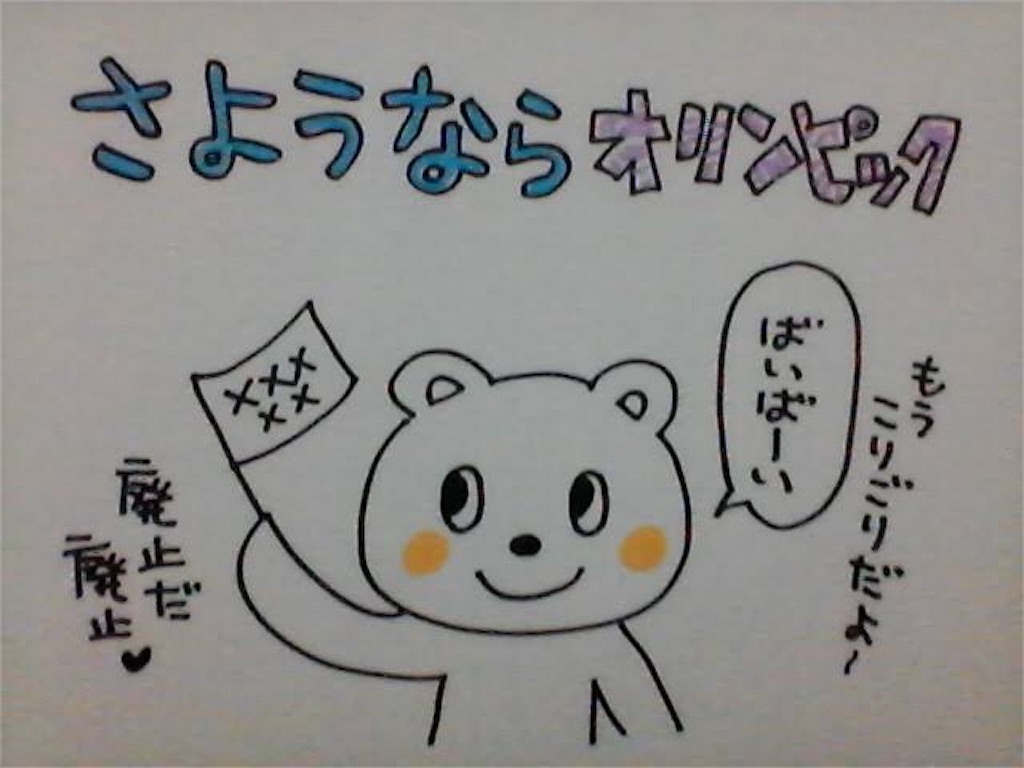 さようならオリンピック
ばいばーい
もう
こりごりだよ〜
廃止だ
廃止♥
×××
××